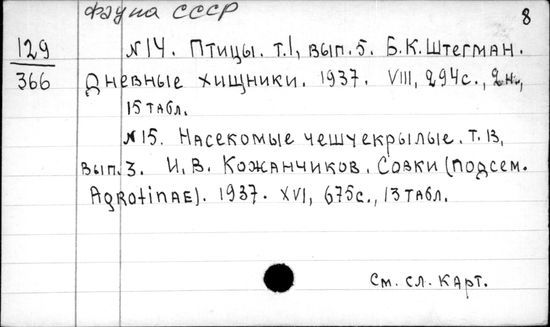 Фауна СССР
8
129
366
№14. Птицы. т.1, вып.5. Б.К. Штегман.
Дневные хищники. 1937. VIII, 294с., 2н.,
15 табл.
№15. Насекомые чешуекрылые. т.13,
вып.3. И.В. Кожанчиков. Совки (подсем.
Agrotinae). 1937. XVI, 675с., 13 табл.
См. сл. карт.